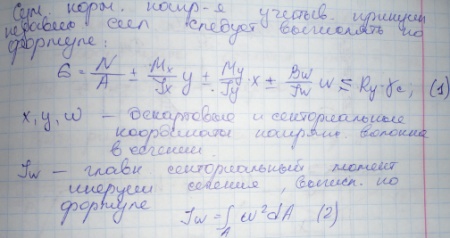 Сум. норм. напр-я учитыв. принцип
независ. сил следует вычислять по
формуле:
σ = N/A ± Mx/Jx y ± My/Jy · x ± Bw/Jw w ≤ Ry · γc, (1)
x, y, w — декартовые и секториальные
координаты напряж. волокна
в сечении.
Jw — главн секториальный момент
инерции сечения, вычисл. по
формуле
Jw = ∫A w² dA, (2)